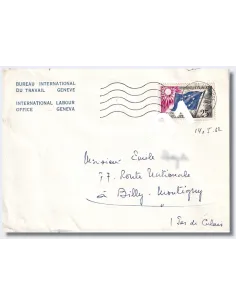 BUREAU INTERNATIONAL
DU TRAVAIL GENÈVE
INTERNATIONAL LABOUR
OFFICE GENEVA
25
Monsieur Emile
77 Route Nationale
à Billy-Montigny
Pas de Calais